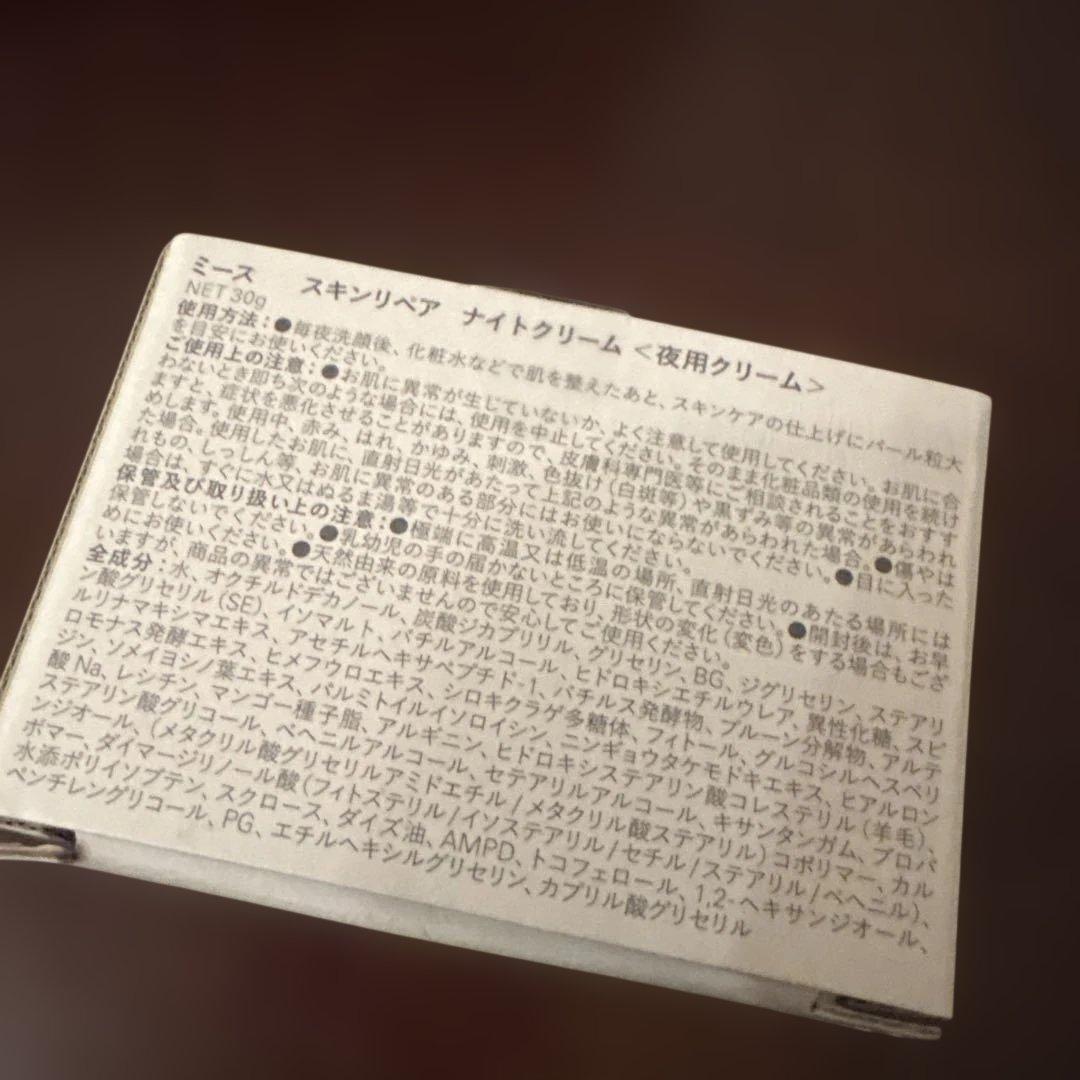 ミース　スキンリペア　ナイトクリーム <夜用クリーム>
NET 30g
使用方法：●毎夜洗顔後、化粧水などで肌を整えたあと、スキンケアの仕上げにパール粒大
を目安にお使いください。
ご使用上の注意：●お肌に異常が生じていないか、よく注意して使用してください。お肌に合
わないとき即ち次のような場合には、使用を中止してください。そのまま化粧品類の使用を続け
ますと、症状を悪化させることがありますので、皮膚科専門医等にご相談されることをおすす
めします。使用中、赤み、はれ、かゆみ、刺激、色抜け(白斑等)や黒ずみ等の異常があらわれ
た場合。使用したお肌に、直射日光があたって上記のような異常があらわれた場合。●傷やは
れもの、しっしん等、お肌に異常のある部分にはお使いにならないでください。●目に入った
場合は、すぐに水又はぬるま湯等で十分に洗い流してください。
保管及び取り扱い上の注意：●極端に高温又は低温の場所、直射日光のあたる場所には
保管しないでください。●乳幼児の手の届かないところに保管してください。●開封後は、お早
めにお使いください。●天然由来の原料を使用しており、形状の変化(変色)をする場合もござ
いますが、商品の異常ではございませんので安心してご使用ください。
全成分：水、オクチルドデカノール、炭酸ジカプリリル、グリセリン、BG、ジグリセリン、ステアリ
ン酸グリセリル(SE)、イソマルト、バチルアルコール、ヒドロキシエチルウレア、異性化糖、スピ
ルリナマキシマエキス、アセチルヘキサペプチド-1、バチルス発酵物、プルーン分解物、アルテ
ロモナス発酵エキス、ヒメフウロエキス、シロキクラゲ多糖体、フィトール、グルコシルヘスペリ
ジン、ソメイヨシノ葉エキス、パルミトイルイソロイシン、ニンギョウタケモドキエキス、ヒアルロン
酸Na、レシチン、マンゴー種子脂、アルギニン、ヒドロキシステアリン酸コレステリル(羊毛)、
ステアリン酸グリコール、ベヘニルアルコール、セテアリルアルコール、キサンタンガム、プロパ
ンジオール、(メタクリル酸グリセリルアミドエチル/メタクリル酸ステアリル)コポリマー、カル
ボマー、ダイマージリノール酸(フィトステリル/イソステアリル/セチル/ステアリル/ベヘニル)、
水添ポリイソブテン、スクロース、ダイズ油、AMPD、トコフェロール、1,2-ヘキサンジオール、
ペンチレングリコール、PG、エチルヘキシルグリセリン、カプリル酸グリセリル